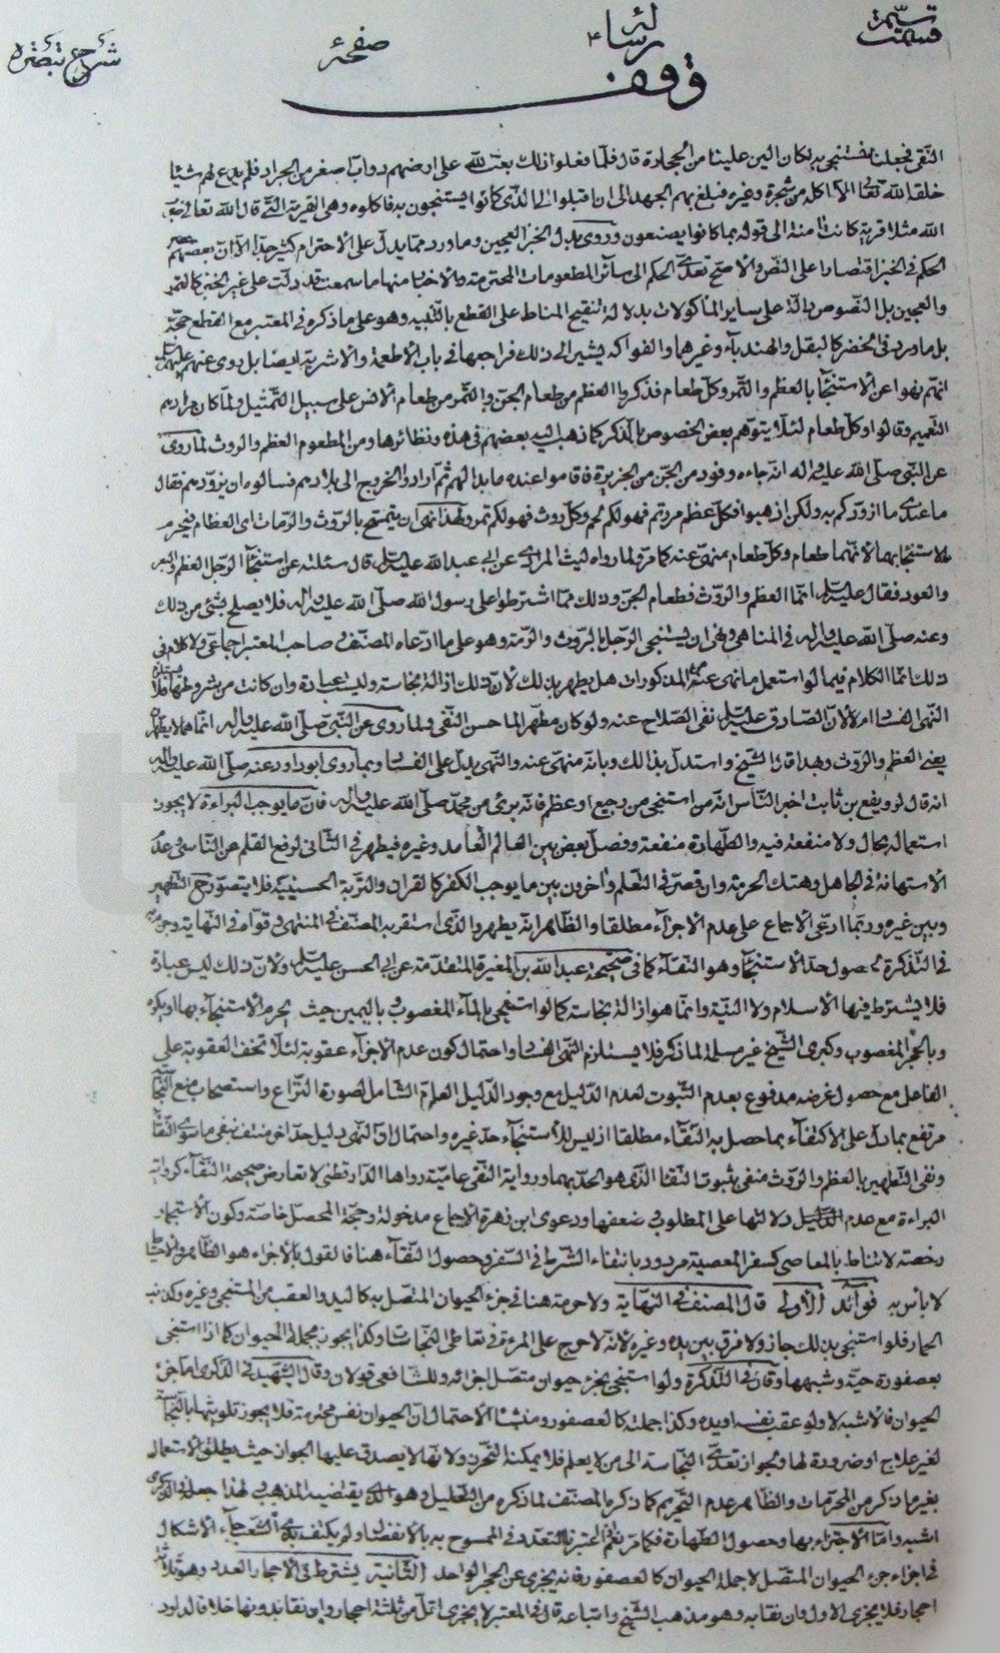 قسمت
رسائل
صفحۀ
شرح تبصره
وقف
النقى فجعلنا نستنجى به لكان الين علينا من الحجارة قال فلما فعلوا ذلك بعث الله على ارضهم دواب اصغر من الجراد فلم يدع لهم شيئا
خلقه الله تعالى الا اكله من شجرة وغيره فبلغ بهم الجهد الى ان اقبلوا الى الذى كانوا يستنجون به فاكلوه وهى القرية التى قال الله تعالى
الله مثلا قرية كانت امنة الى قوله بما كانوا يصنعون وروى بدل الخبز العجين وما ورد مما يدل على الاحترام كثير جدا الا ان بعضهم
الحكم فى الخبز اقتصارا على النص والاصح تعدى الحكم الى سائر المطعومات المحترمة والاخبار منها ما سمعت قد دلت على غير الخبز كالتمر
والعجين بل النصوص دالة على ساير الماكولات بدلالة تنقيح المناط على القطع بالتنبيه وهو على ما ذكره فى المعتبر مع القطع حجة
بل ما ورد فى الخضر كالبقل والهندباء وغيرهما والفواكه يشير الى ذلك فراجعها فى باب الاطعمة والاشربة ايضا بل روى عنهم عليهم السلام
انهم نهوا عن الاستنجاء بالعظم والتمر وكل طعام فذكروا العظم من طعام الجن والتمر من طعام الانس على سبيل التمثيل ولما كان مرادهم
التعميم وقالوا وكل طعام لئلا يتوهم بعض الخصوص بالذكر كما ذهب اليه بعضهم فى هذه ونظائرها ومن المطعوم العظم والروث لما روى
عن النبى صلى الله عليه واله انه جاءه وفود من الجن من الجزيرة فاقاموا عنده ما بدا لهم ثم ارادوا الخروج الى بلادهم فسالوه ان يزودهم فقال
ما عندى ما ازودكم به ولكن اذهبوا فكل عظم مررتم فهو لكم لحم وكل روث فهو لكم تمر ولهذا نهى ان يتمسح بالروث والرمات اى العظام فيحرم
الاستنجا بهما لانهما طعام وكل طعام منهى عنه كما مر ولما رواه ليث المرادى عن ابى عبد الله عليه السلام قال سئلته عن استنجاء الرجل العظم والبعر
والعود فقال عليه السلام اما العظم والروث فطعام الجن وذلك مما اشترطوا على رسول الله صلى الله عليه واله فلا يصلح بشئ من ذلك
وعنه صلى الله عليه واله فى المناهى ونهى ان يستنجى الرجل بالروث والرمة وهو على ما ادعاه المصنف و صاحب المعتبر اجماعى ولا كلام فى
ذلك انما الكلام فيما لو استعمل ما نهى عنه من المذكورات هل يطهر بذلك لان ذلك ازالة نجاسة وليست عبادة وان كانت من شروطها فلا يستلزم
النهى الفساد ام لا لان الصادق عليه السلام نفى الصلاح عنه ولو كان مطهرا لما حسن النفى ولما روى عن النبى صلى الله عليه واله انهما لا يطهران
يعنى العظم والروث وبهذا قال الشيخ واستدل بذلك وبانه منهى عنه والنهى يدل على الفساد وبما روى ابو داود عنه صلى الله عليه واله
انه قال لرويفع بن ثابت اخبر الناس انه من استنجى من رجيع او عظم فانه برئ من محمد صلى الله عليه واله فان ما يوجب البراءة لا يجوز
استعماله بحال ولا منفعة فيه والطهارة منفعة وفصل بعض بين العالم العامد وغيره فيطهر فى الثانى لرفع القلم عن الناسى وعدم
الاستهانة فى الجاهل وهتك الحرمة وان قصر فى التعلم واخرون بين ما يوجب الكفر كالقران والتربة الحسينية فلا يتصور مع التطهير
وبين غيره وربما ادعى الاجماع على عدم الاجزاء مطلقا والظاهر انه يطهر والذى استقر به المصنف فى المنتهى وقواه فى النهاية
فى التذكرة حصول حد الاستنجاء وهو النقاء كما فى صحيحة عبد الله بن المغيرة المتقدمة عن ابى الحسن عليه السلام ولان ذلك ليس عبادة
فلا يشترط فيها الاسلام ولا النية وانما هو ازالة نجاسة كما لو استنجى بالماء المغصوب و باليمين حيث يحرم الاستنجاء بها او يكره
وبالحجر المغصوب وكبرى الشيخ غير مسلمة لما ذكر فلا يستلزم النهى الفساد واحتمال كون عدم الاجزاء عقوبة لئلا تخف العقوبة على
الفاعل مع حصول غرضه مدفوع بعدم الثبوت لعدم الدليل مع وجود الدليل العام الشامل لصورة النزاع واستصحاب منع النجاسة
مرتفع بما دل على الاكتفاء بما حصل به النقاء مطلقا اذ ليس للاستنجاء حد غيره واحتمال ان النهى دليل حد اخر منتف بنفى ما سوى النقاء
ونفى التطهير بالعظم والروث منفى بثبوت النقاء الذى هو الحد بهما ورواية النفى عامية رواها الدارقطنى لا تعارض صحيحة النقاء كرواية
البراءة مع عدم دلالتها على المطلوب و ضعفها ودعوى ابن زهرة الاجماع مدخولة وحجة المحصل خاصة وكون الاستجمار
رخصة لا تناط بالمعاصى كسفر المعصية مردود بانتفاء الشرط فى السفر وحصول النقاء هنا فالقول بالاجزاء هو الظاهر والاحتياط
لا باس به فوائد الاولى قال المصنف فى النهاية ولا حرمة هنا فى جزء الحيوان المتصل به كاليد والعقب من المستنجى وغيره وكذنب
الحمار فلو استنجى بذلك جاز ولا فرق بين يده وغيره لانه لا حرج على المرء فى تعاطى النجاسات وكذا يجوز بجملة الحيوان كما اذا استنجى
بعصفورة حية وشبهها وقال فى التذكرة ولو استنجى بجزء حيوان متصل اجزائه وللشافعى قولان وقال الشهيد فى الذكرى اما جزء
الحيوان فالاشبه لا ولو عقب نفسه او يده وكذا جملته كالعصفور ومنشا الاحتمال ان الحيوان نفس محترمة فلا يجوز تلويثها بالنجاسة
لغير علاج او ضرورة لها ويجوز تعدى النجاسة الى من لا يعلم فلا يمكنه التحرز ولانها لا يصدق عليها الجواز حيث يطلق الاستعمال
بغير ما ذكر من المحرمات والظاهر عدم التحريم كما ذكره المصنف لما ذكره من التعليل وهو الذى يقتضيه المذهب و لهذا جعله فى الذكرى
اشبه واما الاجتزاء بها وحصول الطهارة فكما مر نعم اعتبر بالتعدد فى الممسوح به بالانفصال ولم يكتف بذى الشعب جاء الاشكال
فى اجزاء جزء الحيوان المتصل لا جملة الحيوان كالعصفور فانه يجزى عن الحجر الواحد الثانية يشترط فى الاحجار العدد وهو ثلاثة
احجار فلا يجزى الاول وان نقا به وهو مذهب الشيخ واتباعه قال فى المعتبر لا يجزى اقل من ثلثة احجار وان نقا بدونها خلافا لداود